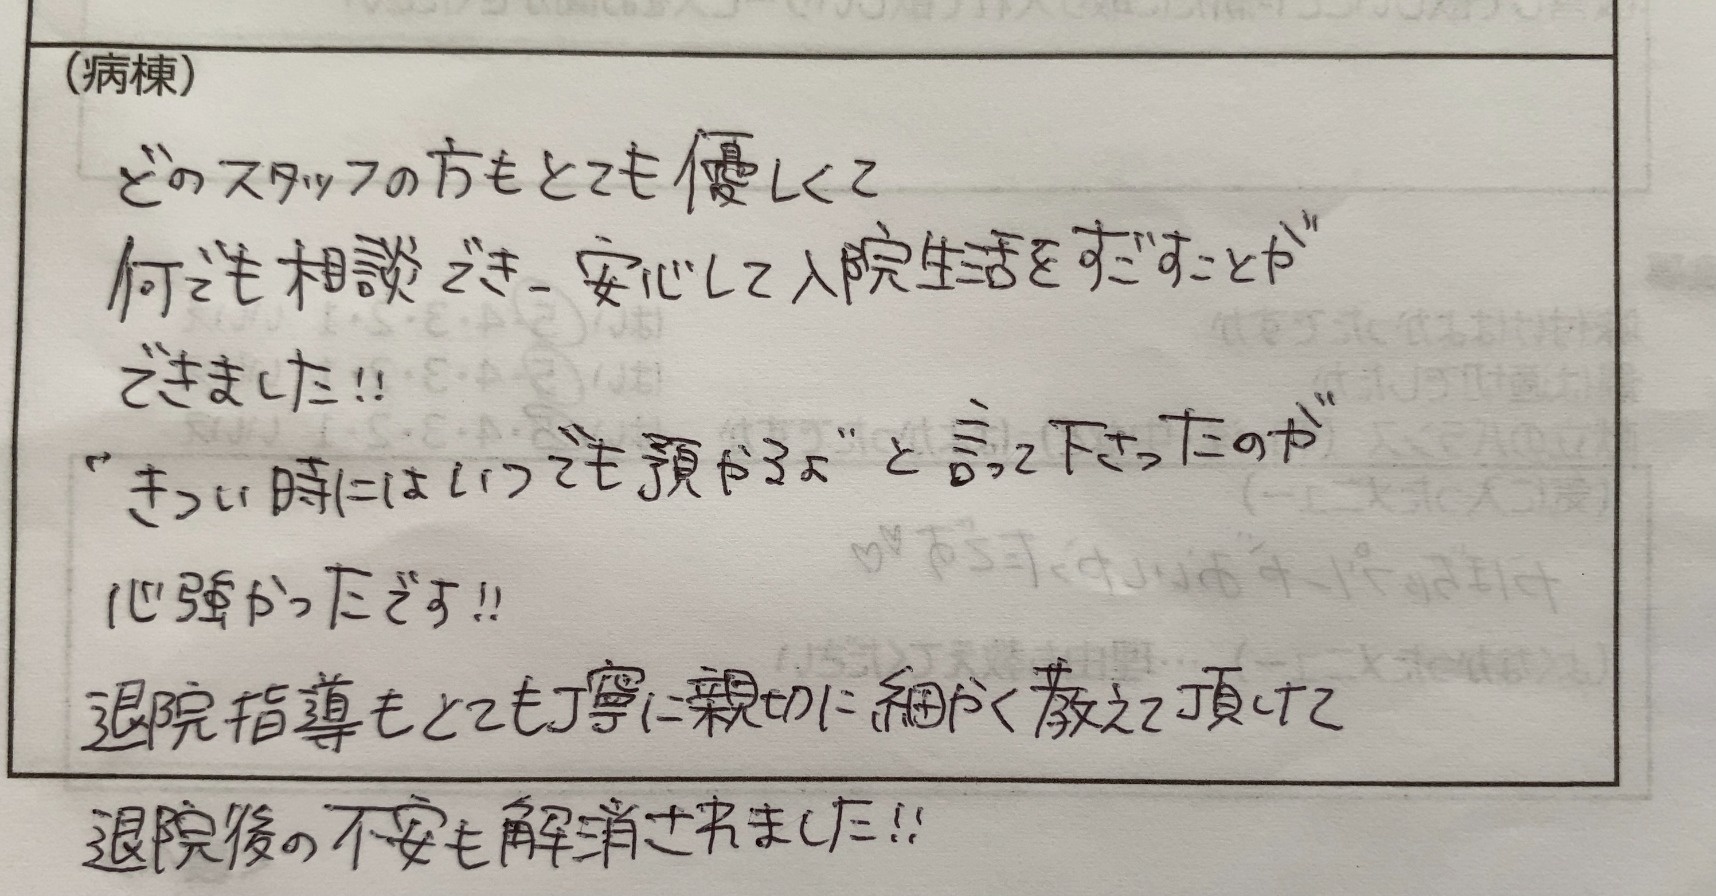 (病棟)
どのスタッフの方もとても優しくて
何でも相談でき、安心して入院生活をすごすことが
できました!!
"きつい時にはいつでも預かるよ"と言って下さったのが
心強かったです!!
退院指導もとても丁寧に親切に細かく教えて頂けて
退院後の不安も解消されました!!